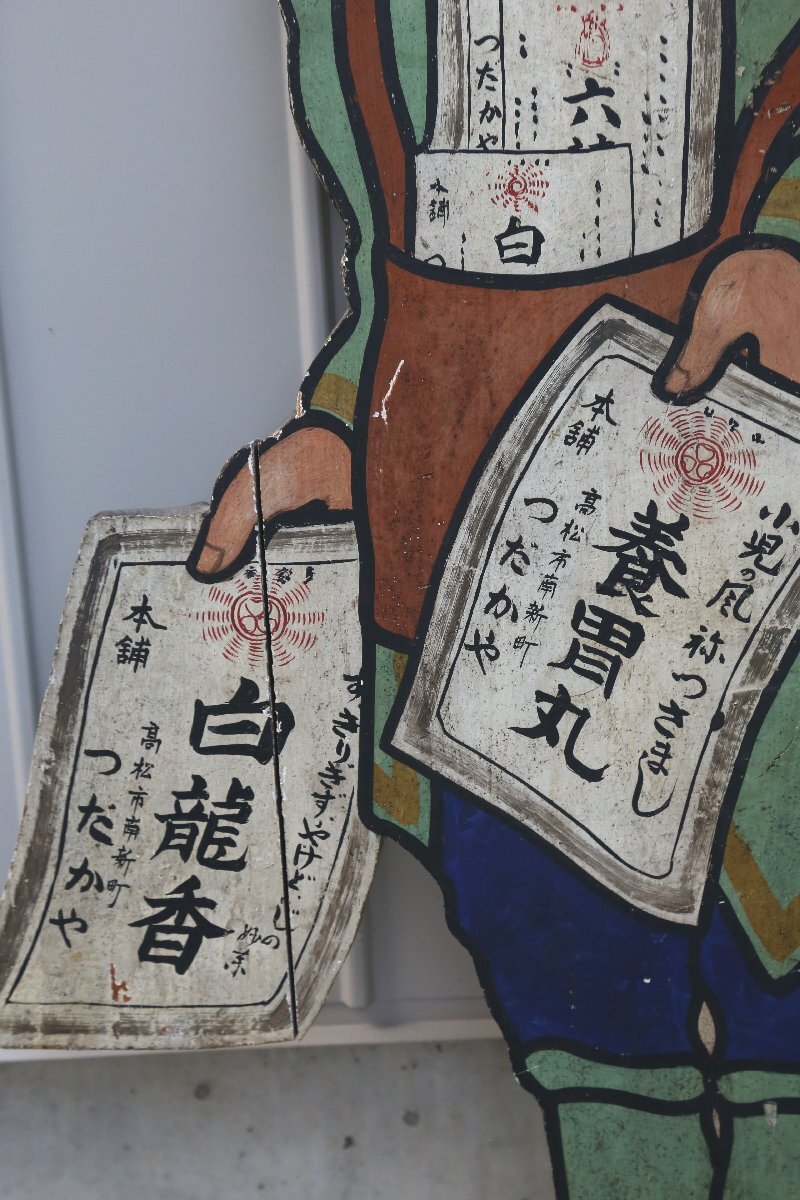 六神
つだかや
白
本舗
小児の風
祢つさまし
養胃丸
高松市南新町
つだかや
本舗
すきりきず、やけど、じの
妙薬
白龍香
高松市南新町
つだかや
本舗